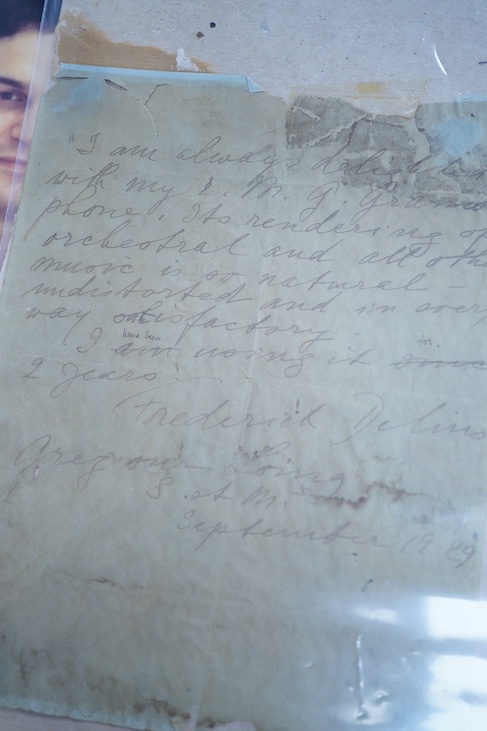 "I am always delighted
with my E. M. G. Gramo
phone. Its rendering of
orchestral and all othe
music is so natural -
undistorted and in every
way satisfactory.
have been for
I am using it since
2 years
Frederick Delius
Grez sur Loing
S. et M.
September 1929